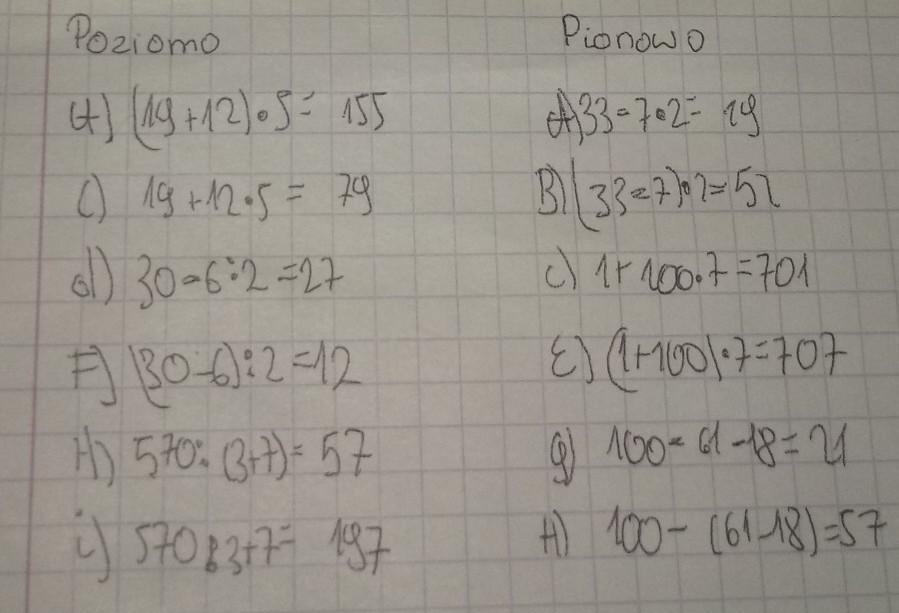 Poziomo Pionowo
A) (19+12)•5= 155 A) 33-7•2= 19
C) 19+12•5 = 79 B) (33-7)•2=52
d) 30-6:2=27 c) 1+100•7=701
F) (30-6):2=12 E) (1+100)•7=707
H) 570:(3+7)= 57 g) 100-61-18=21
i) 570:3+7= 197 H) 100-(61-18)=57